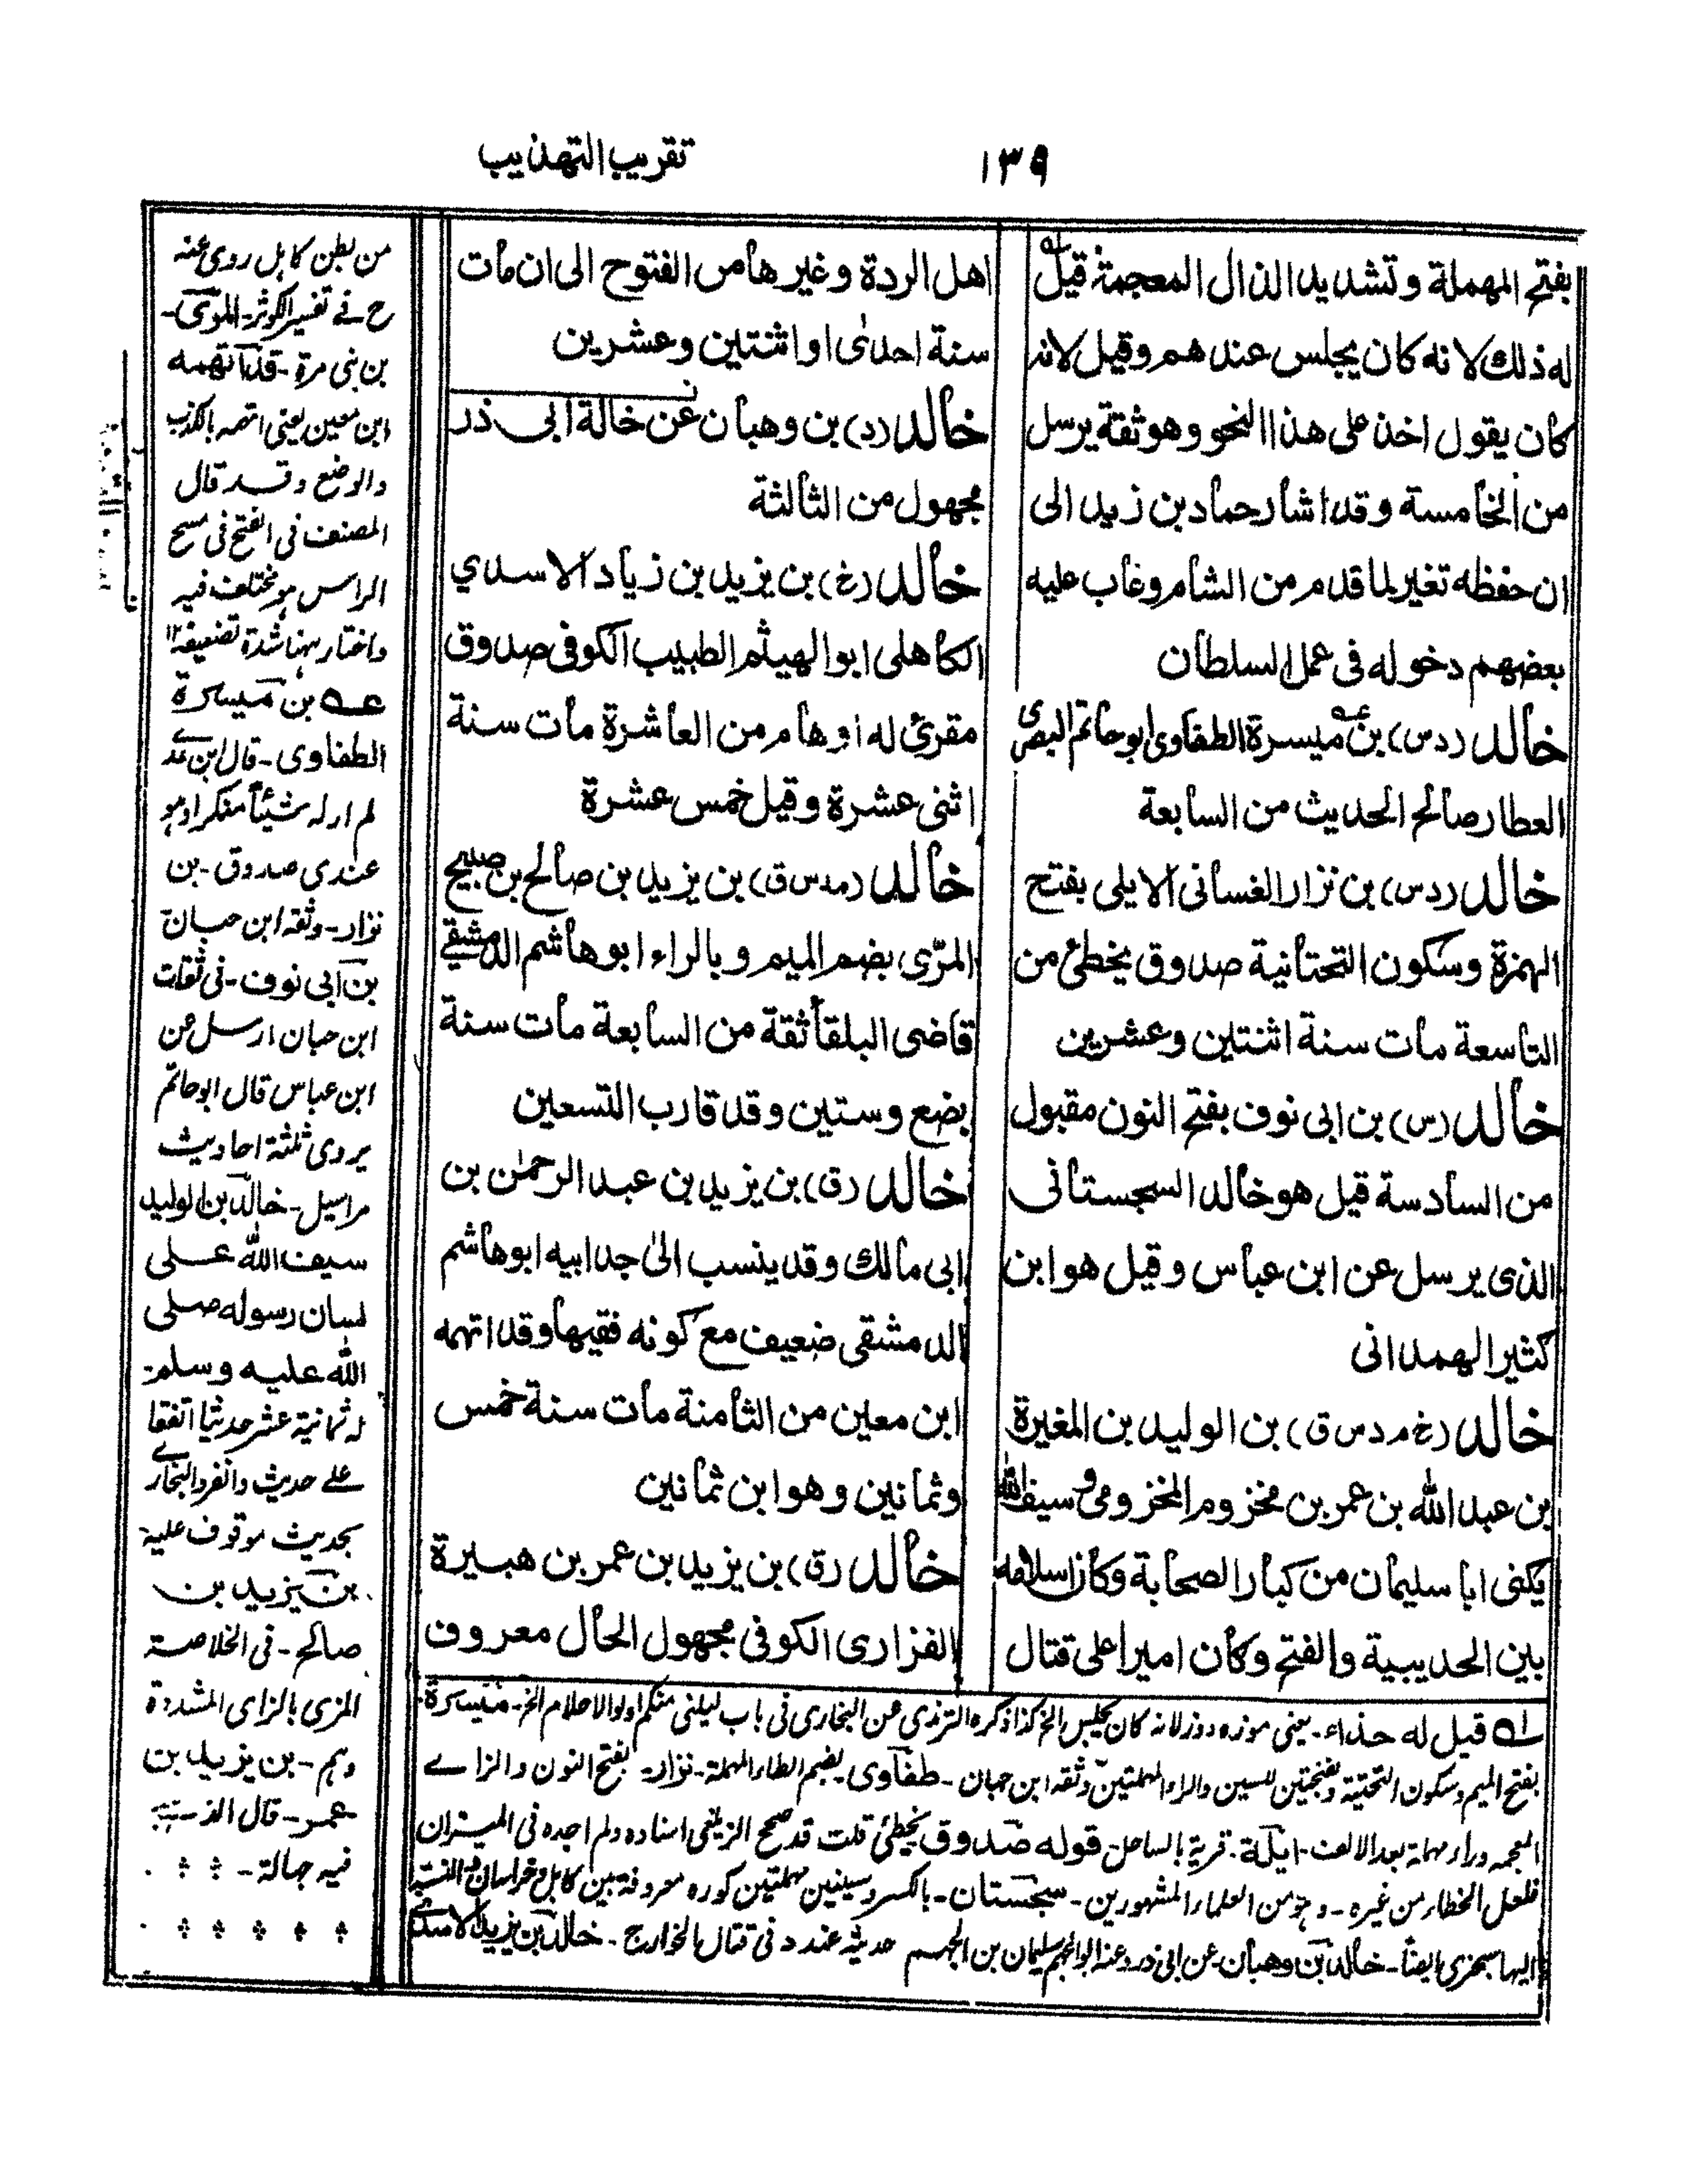 تقريب التهذيب
١٣٩
بفتح المهملة وتشديد الذال المعجمة قيل
له ذلك لانه كان يجلس عندهم وقيل لانه
كان يقول اخذ على هذا النحو وهو ثقة يرسل
من الخامسة وقد اشار حماد بن زيد الى
ان حفظه تغير لما قدم من الشام وغاب عليه
بعضهم دخوله فى عمل السلطان
خالد (دس) بن ميسرة الطفاوى ابو حاتم البصرى
العطار صالح الحديث من السابعة
خالد (دس) بن نزار الغسانى الايلى بفتح
الهمزة وسكون التحتانية صدوق يخطئ من
التاسعة مات سنة اثنتين وعشرين
خالد (س) بن ابى نوف بفتح النون مقبول
من السادسة قيل هو خالد السجستانى
الذى يرسل عن ابن عباس وقيل هو ابن
كثير الهمدانى
خالد (خ م د س ق) بن الوليد بن المغيرة
بن عبد الله بن عمر بن مخزوم المخزومى سيف الله
يكنى ابا سليمان من كبار الصحابة وكان اسلامه
بين الحديبية والفتح وكان اميرا على قتال
اهل الردة وغيرها من الفتوح الى ان مات
سنة احدى او اثنتين وعشرين
خالد (د) بن وهبان عن خالة ابى ذر
مجهول من الثالثة
خالد (خ) بن يزيد بن زياد الاسدي
الكاهلى ابو الهيثم الطبيب الكوفى صدوق
مقرئ له اوهام من العاشرة مات سنة
اثنى عشرة وقيل خمس عشرة
خالد (مدس ق) بن يزيد بن صالح بن صبيح
المرّى بضم الميم وبالراء ابو هاشم الدمشقى
قاضى البلقا ثقة من السابعة مات سنة
بضع وستين وقد قارب التسعين
خالد (ق) بن يزيد بن عبد الرحمن بن
ابى مالك وقد ينسب الى جد ابيه ابو هاشم
الدمشقى ضعيف مع كونه فقيها وقد اتهمه
ابن معين من الثامنة مات سنة خمس
وثمانين وهو ابن ثمانين
خالد (ق) بن يزيد بن عمر بن هبيرة
الفزارى الكوفى مجهول الحال معروف
من بطن كاہل روى عنہ
خ فے تفسير الكوثر - المرّى -
بن بنى مرة - قد اتهمه
ابن معين يعنى اتهمه بالكذب
والوضع وقد قال
المصنف فى الفتح فى مسح
الراس ہو مختلف فيہ
واختار ہہنا شدة تضعيفه ١٢
عه بن ميسرة
الطفاوى - قال ابن عدے
لم ار لہ شيئا منكرا وہو
عندى صدوق - بن
نزار - وثقه ابن حبان
بن ابى نوف - فى ثقات
ابن حبان ارسل عن
ابن عباس قال ابو حاتم
يروى ثلثة احاديث
مراسيل - خالد بن الوليد
سيف الله على
لسان رسوله صلى
الله عليه وسلم -
لہ ثمانية عشر حديثا اتفقا
علے حديث وانفرد البخارے
بحديث موقوف عليه
بن يزيد بن
صالح - فى الخلاصة
المزى بالزاى المشددة
وہم - بن يزيد بن
عمر - قال الذہبى
فيہ جہالة -
له قيل له حذاء - يعنى موزه دوز لانه كان يجلس الخ كذا ذكره الترمذى عن البخارى فى باب ليلنى منكم اولوا الاحلام الخ - ميسرة -
بفتح الميم وسكون التحتية وبفتحتين للسين والراء المهملتين وثقه ابن حبان - طفاوى بضم الطاء المهملة - نزار - بفتح النون والزاے
المعجمه وراء مهملة بعد الالف - ايلة - قرية بالساحل - قوله صدوق يخطئ قلت قد صحح الزيلعى اسناده ولم اجده فى الميزان
فلعل الخطاء من غيره - وہو من العلماء المشهورين - سجستان - بالكسر وسينين مهملتين كوره معروفة بين كابل وخراسان والنسبة
اليها سجزى ايضا - خالد بن وهبان عن ابى ذر وعنه ابو الجهم سليمان بن الجهم حديثه عند د فى قتال الخوارج - خالد بن يزيد الاسدے